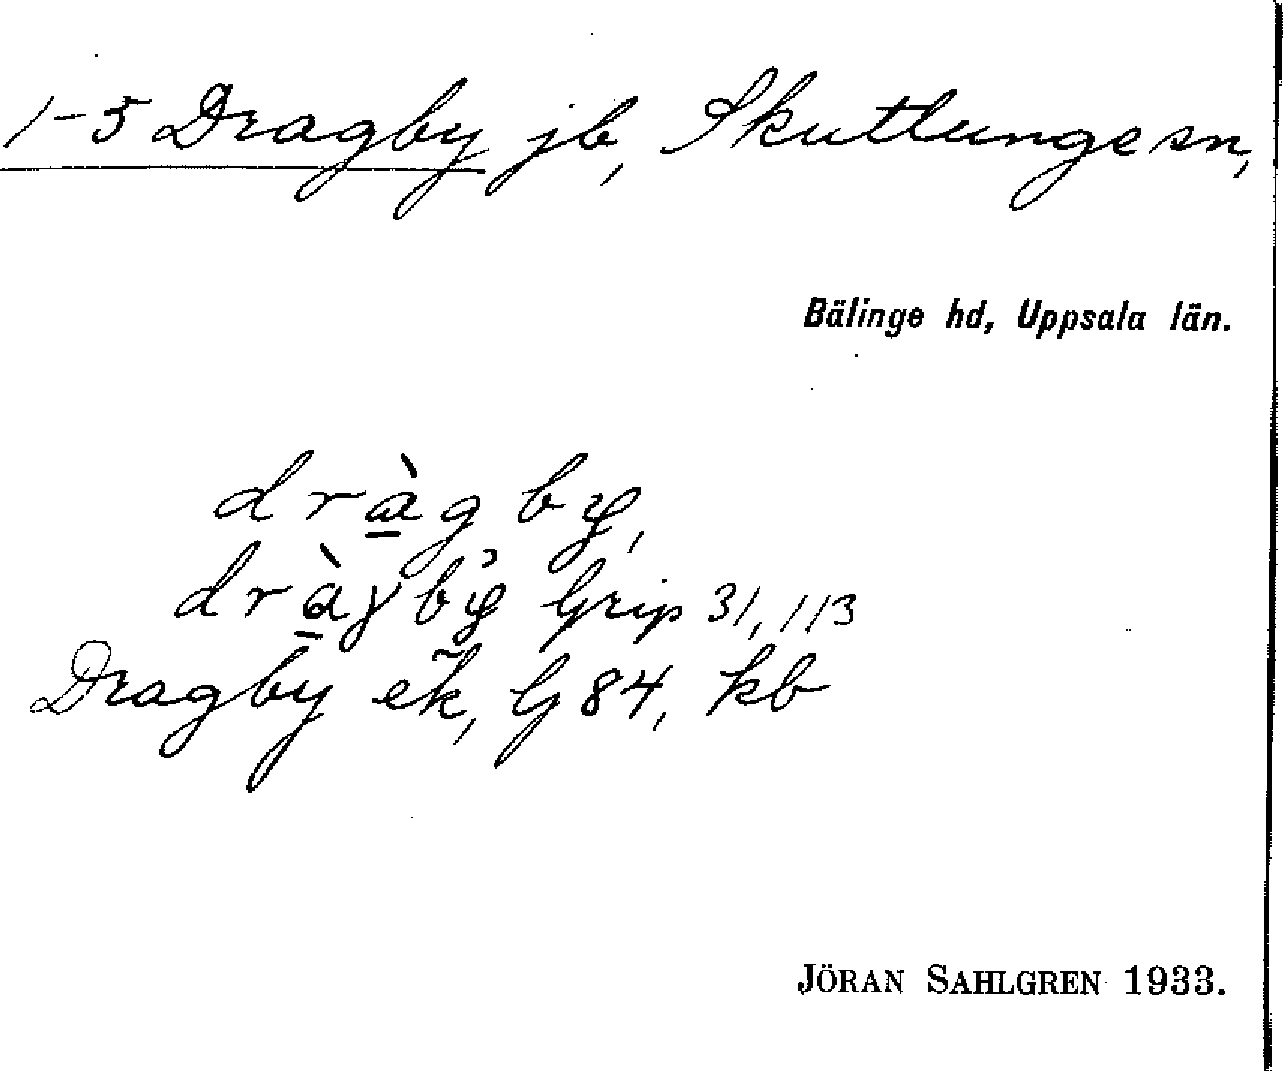 1-5 Dragby jb, Skuttunge sn,
Bälinge hd, Uppsala län.
dràg by,
dràɣby Grip 31, 113
Dragby ek, G 84, kb
JÖRAN SAHLGREN 1933.